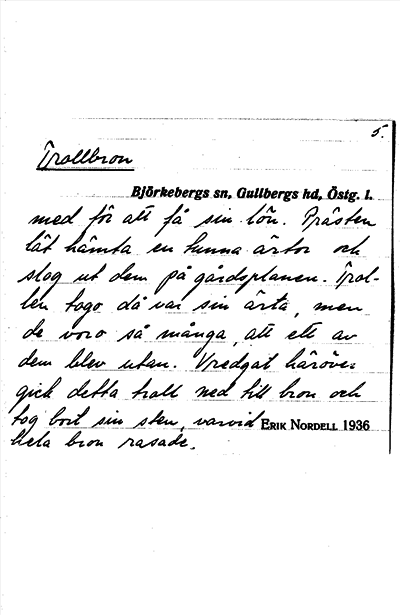 5.
Trollbron
Björkebergs sn, Gullbergs hd, Östg. l.
med för att få sin lön. Prästen
lät hämta en tunna ärtor och
slog ut dem på gårdsplanen. Trol-
len togo då var sin ärta, men
de voro så många, att ett av
dem blev utan. Vredgat häröver
gick detta troll ned till bron och
tog bort sin sten, varvid
ERIK NORDELL 1936
hela bron rasade.